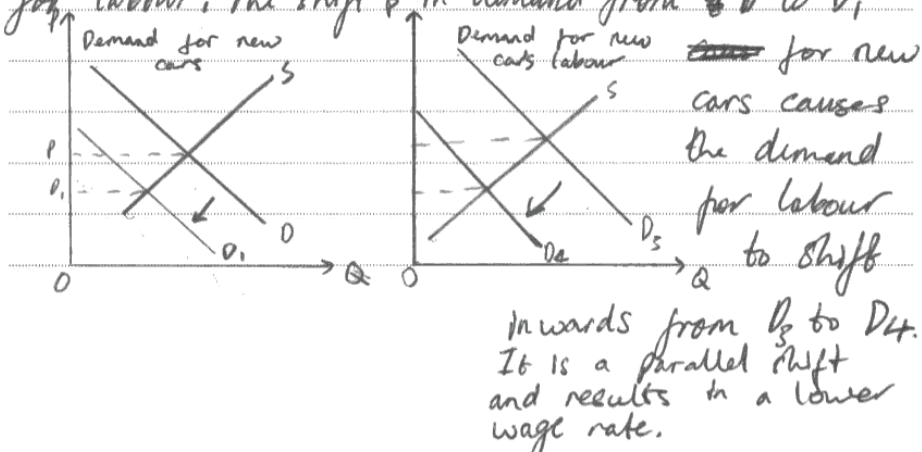 for labour, the shift in demand from D to D1
P
Demand for new
cars
S
P
P1
D
D1
O
Q
Demand for new
cars labour
S
D3
D4
O
Q
for new
cars causes
the demand
for labour
to shift
inwards from D3 to D4.
It is a parallel shift
and results in a lower
wage rate.